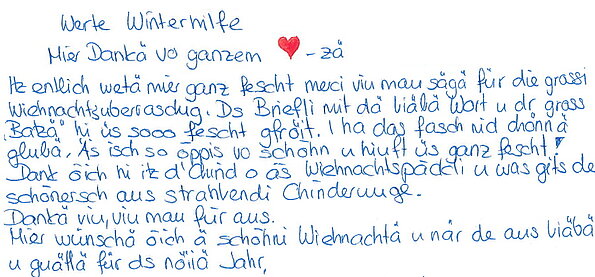 Werte Winterhilfe
Mier Dankä vo ganzem ♥-zä
Itz entlich wetä mier ganz fescht merci viu mau sägä für die grossi
Wiehnachtsüberraschig. Ds Briefli mit dä liäbä Wort u dr gross
"Batzä" hi üs sooo fescht gfröit. I ha das fasch nid chönnä
gloubä. Äs isch so öppis vo schön u hiuft üs ganz fescht!
Dank öich hi itz d'Chind o äs Wiehnachtspäckli u was gits de
schönersch aus strahlendi Chinderouge.
Dankä viu, viu mau für aus.
Mier wünschä öich ä schöhni Wiehnachtä u när de aus liäbä
u guätä für ds nöiä Jahr,